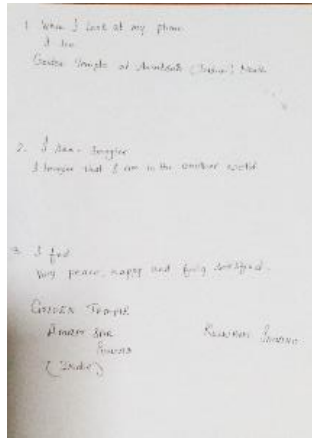 1. When I look at my phone
I see
Golden Temple at Amritsar (India) North
2. I see - Imagine
I imagine that I am in the another world
3. I feel
Very peace, happy and fully satisfied.
GOLDEN TEMPLE
AMRITSAR
PUNJAB
(India)